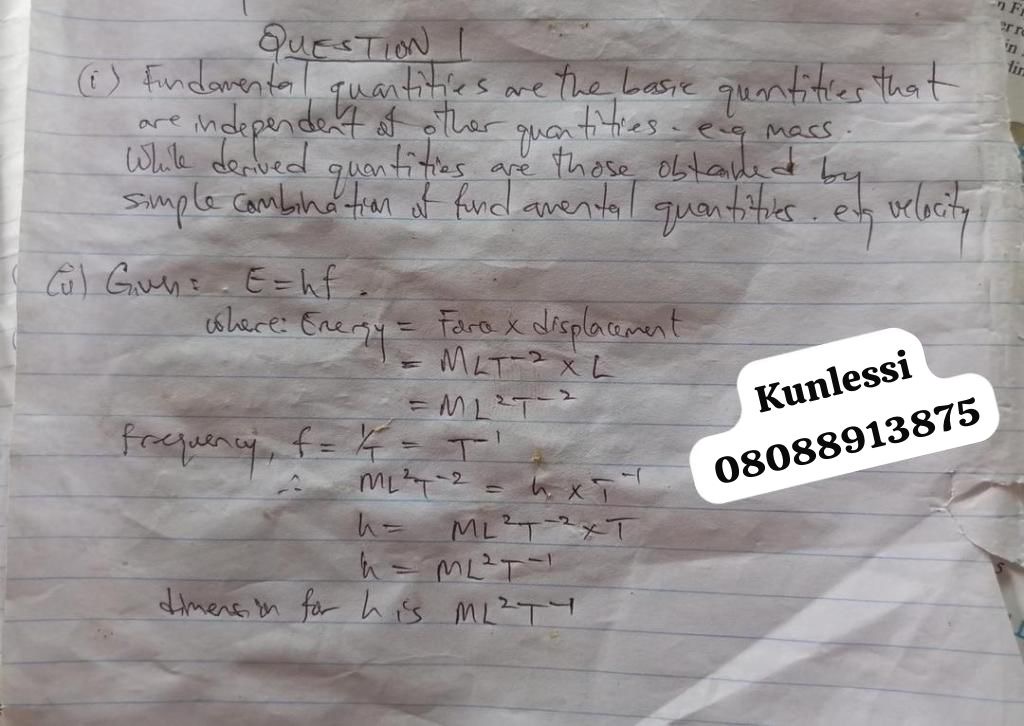 QUESTION 1
(i) Fundamental quantities are the basic quantities that
are independent of other quantities. e.g mass.
While derived quantities are those obtained by
simple combination of fundamental quantities. e.g velocity
(ii) Given: E = hf.
where: Energy = Force x displacement
= MLT⁻² x L
= ML²T⁻²
frequency, f = 1/T = T⁻¹
∴ ML²T⁻² = h x T⁻¹
h = ML²T⁻² x T
h = ML²T⁻¹
dimension for h is ML²T⁻¹
Kunlessi
08088913875